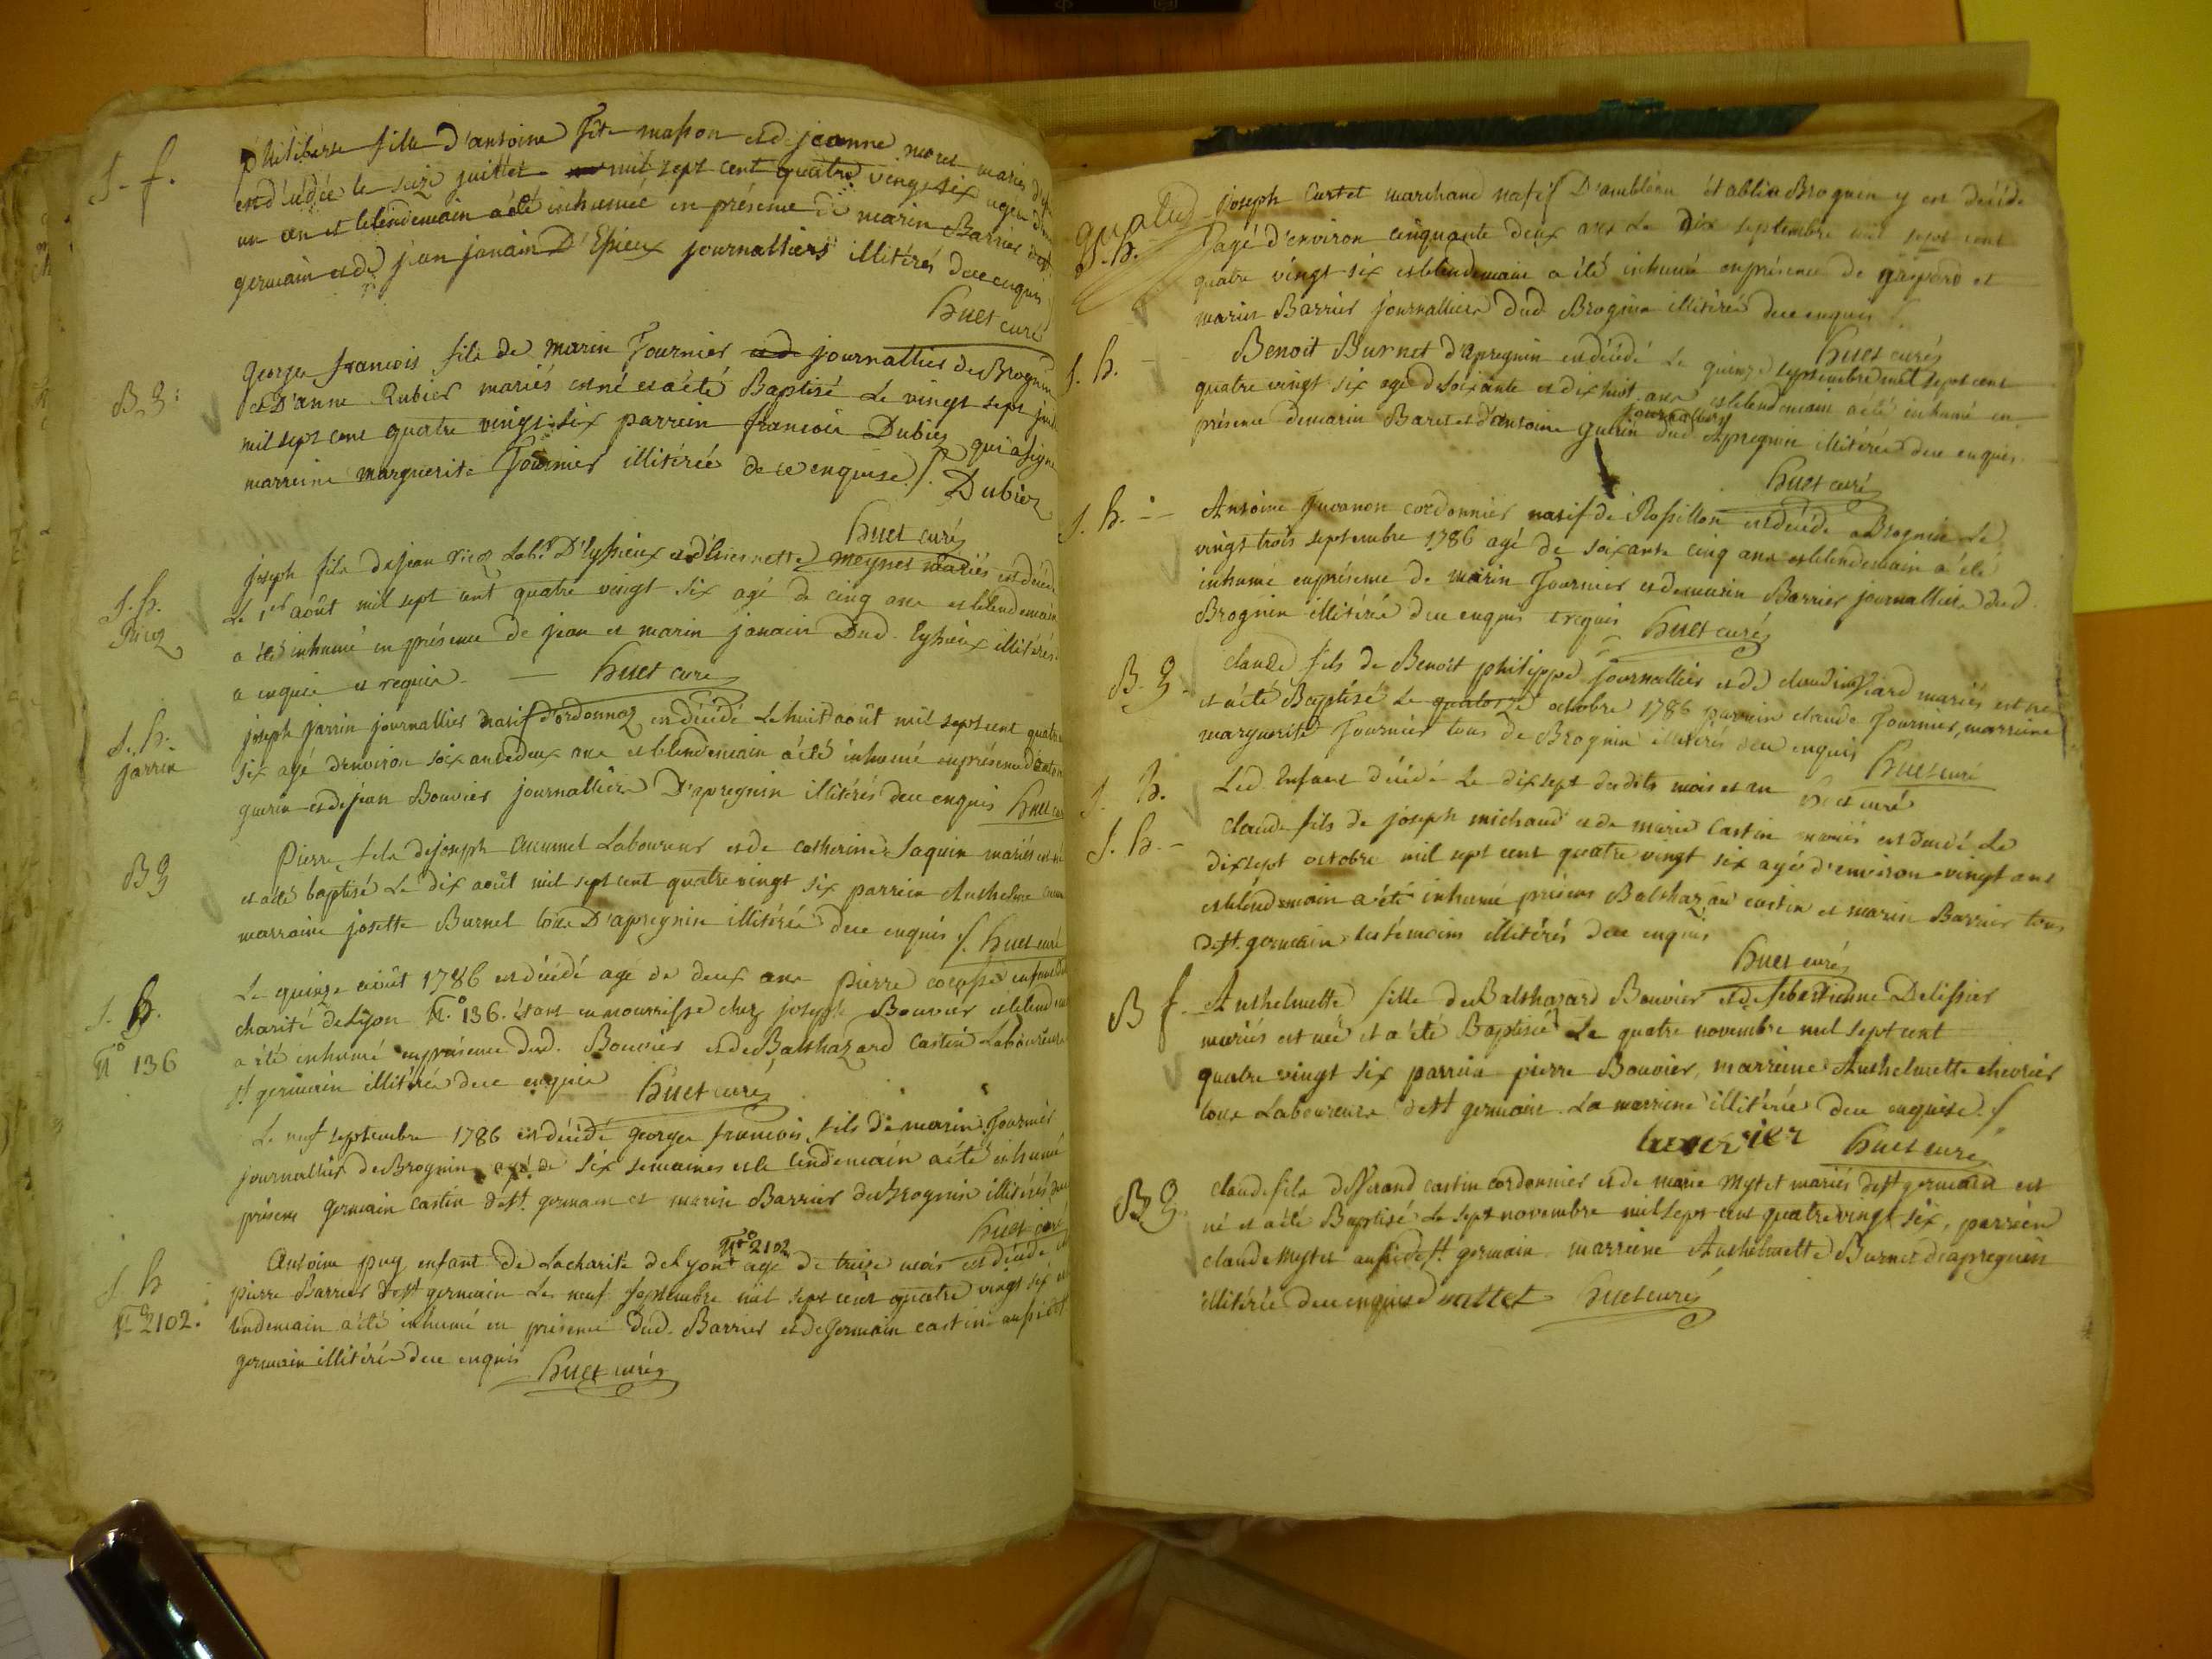 S. f.
philiberte fille d'antoine fête masson et de jeanne moret mariés
est décédée le seize juillet mil sept cent quatre vingt six agée d'environ
un an et le lendemain a été inhumée en présence de marin Barrier
germain et de jean janain D'Essieux journalliers illitérés de ce enquis
huet curé
B. g:
george francois fils de marin Fournier journallier de Brognin
et D'anne Rubier mariés est né et a été Baptisé Le vingt sept
mil sept cent quatre vingt six parrein francois Dubiez qui a signé
marreine marguerite Fournier illitérée de ce enquise ./. Dubiez
huet curé
S. h.
Picoz
joseph fils de jean Lab.r D'Essieux et d'Estiennette meynet mariés est décédé
Le 1er août mil sept cent quatre vingt six agé de cinq ans et le lendemain
a été inhumé en présence de jean et marin janain Dud. Essieux illitérés
a enquis et requis. — huet curé
S. h.
jarrin
joseph jarrin journallier natif d'ordonnaz est décédé Le huit août mil sept cent quatre
six agé d'environ soixante deux ans et le lendemain a été inhumé en présence d'antoine
guerin et de jean Bouvier journalliers D'apregnin illitérés de ce enquis huet curé
B g
Pierre fils de joseph Laboureur et de catherine Jaquin mariés est né
et a été baptisé Le dix août mil sept cent quatre vingt six parrein Anthelme
marraine josette Burnet tous D'apregnin illitérés de ce enquis ./. huet curé
S. h.
N° 136
Le quinze août 1786 est décédé agé de deux ans Pierre enfant de
charité de Lyon N.° 136. étant en nourrisse chez joseph Bouvier et le lendemain
a été inhumé en présence dud. Bouvier et de Balthazard Castin Laboureurs
St germain illitérés de ce enquis huet curé
Le neuf septembre 1786 est décédé george francois fils de marin Fournier
journallier de Brognin agé de six semaines et le lendemain a été inhumé
présens germain castin de St. germain et marin Barrier de Brognin illitérés
huet curé
S. h
N° 2102.
N° 2102
Antoine puy enfant de La charité de Lyon agé de treize mois est décédé
pierre Barrier de St germain Le neuf septembre mil sept cent quatre vingt six
lendemain a été inhumé en présence dud. Barrier et de germain castin aussi de St
germain illitérés de ce enquis huet curé
S. h.
joseph Curtet marchand natif D'ambléon établi a Brognin y est décédé
agé d'environ cinquante deux ans Le Dix septembre mil sept cent
quatre vingt six et le lendemain a été inhumé en présence de et
marin Barrier journalliers dud. Brognin illitérés de ce enquis
huet curé
S. h.
Benoit Burnet d'apregnin est décédé Le quinze septembre mil sept cent
quatre vingt six agé de soixante et dix huit ans et le lendemain a été inhumé en
journalliers
présence de marin Baret et d'antoine guerin dud. apregnin illitérés de ce enquis.
huet curé
S. h.
Antoine cordonnier natif de Rossillon est décédé a Brognin Le
vingt trois septembre 1786 agé de soixante cinq ans et le lendemain a été
inhumé en présence de marin Fournier et de marin Barrier journalliers dud.
Brognin illitérés de ce enquis et requis huet curé
B. g.
claude fils de Benoit philippe journallier et de mariés est né
et a été Baptisé Le quatorze octobre 1786 parrein claude Fournier, marreine
marguerite Fournier tous de Brognin illitérés de ce enquis
huet curé
S. h.
Led. Enfant décédé Le dix sept desdits mois et an huet curé
S. h.
claude fils de joseph michaud et de marie Castin mariés est décédé Le
dix sept octobre mil sept cent quatre vingt six agé d'environ vingt ans
et le lendemain a été inhumé présens Balthazard castin et marin Barrier tous
de St. germain les témoins illitérés de ce enquis
huet curé
B f.
Anthelmette fille de Balthazard Bouvier et de sebastienne Delissier
mariés est née et a été Baptisée Le quatre novembre mil sept cent
quatre vingt six parrein pierre Bouvier, marreine Anthelmette chevrier
tous Laboureurs de St germain. La marreine illitérée de ce enquise ./.
huet curé
B g.
claude fils de castin cordonnier et de marie Mytet mariés de St germain est
né et a été Baptisé Le sept novembre mil sept cent quatre vingt six, parrein
claude Mytet aussi de St. germain. marreine Anthelmette Burnet d'apregnin
illitérée de ce enquise huet curé